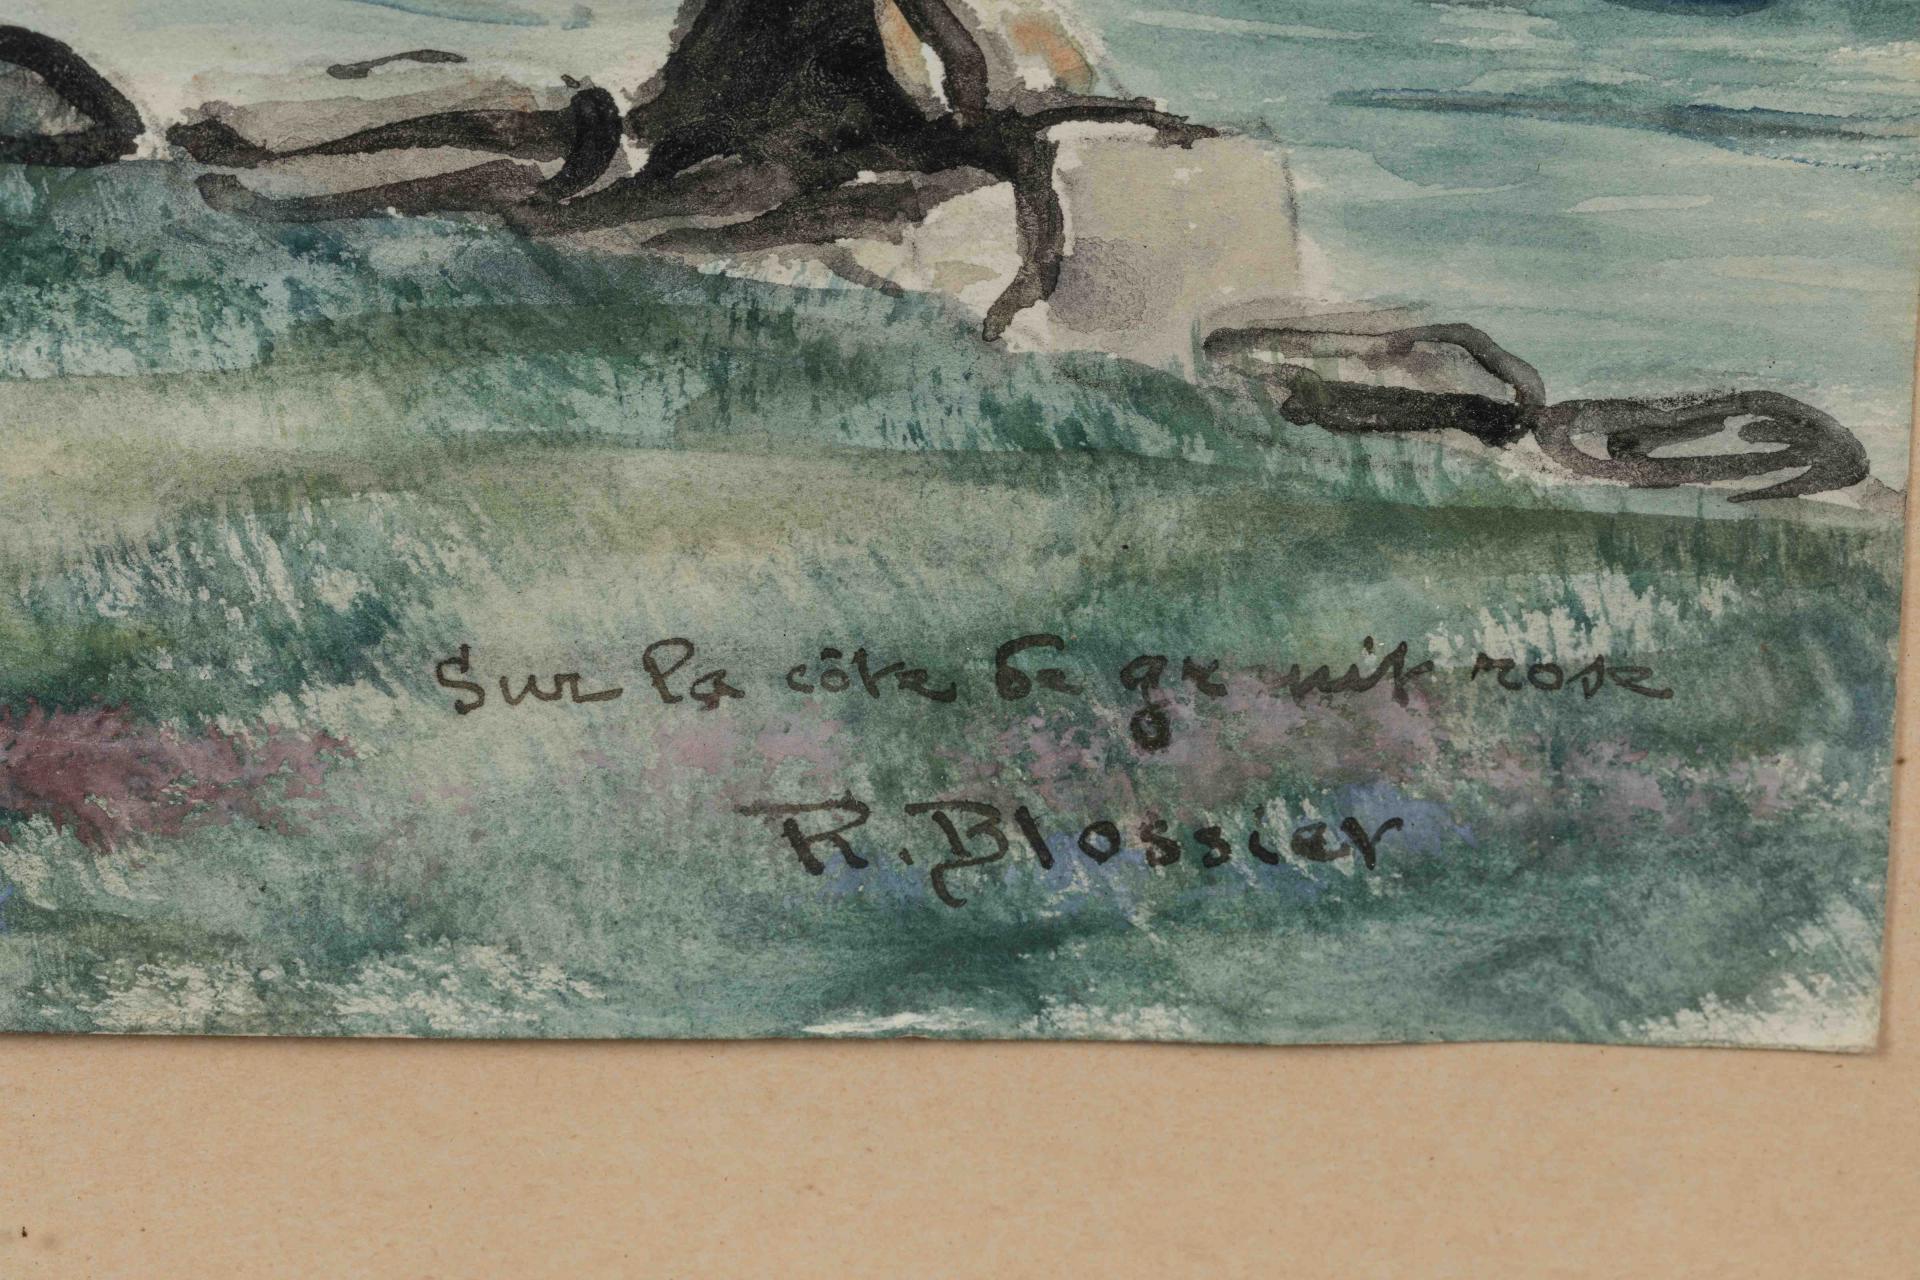 Sur la côte de granit rose
R. Blossier